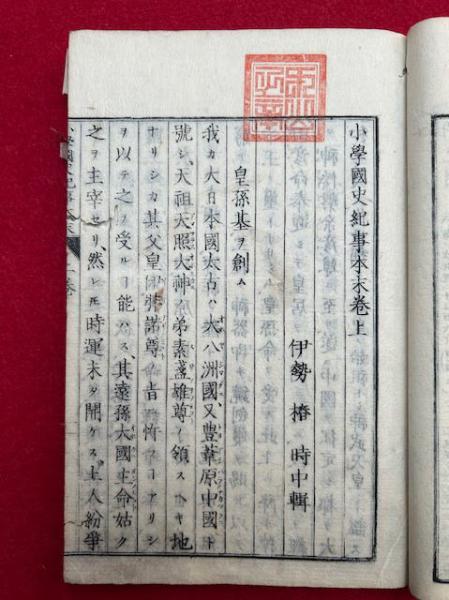 小學國史紀事本末卷上
伊勢 椿 時中輯
皇孫基ヲ創ム
我カ大日本國太古ハ大八洲國、又豐葦原中國ト
號シ、天祖天照大神ノ弟素盞雄尊ノ領スヘキ地
ナリシカ其父皇伊弉諾尊ノ旨ニ忤フヿアリシ
ヲ以テ之ヲ受ルヿ能ハス、其遠孫大國主命姑ク
之ヲ主宰セリ、然レ𪜈時運未タ開ケス、土人紛爭